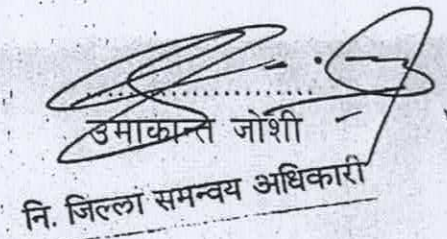 उमाकान्त जोशी
नि. जिल्ला समन्वय अधिकारी